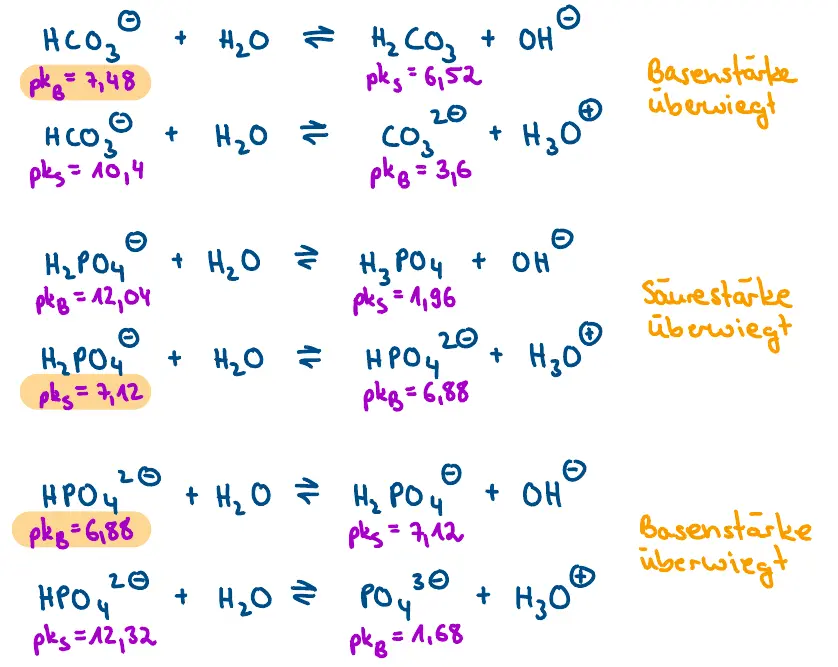 HCO₃⊖ + H₂O ⇌ H₂CO₃ + OH⊖
pk_B = 7,48 pk_S = 6,52
Basenstärke
überwiegt
HCO₃⊖ + H₂O ⇌ CO₃²⊖ + H₃O⊕
pk_S = 10,4 pk_B = 3,6
H₂PO₄⊖ + H₂O ⇌ H₃PO₄ + OH⊖
pk_B = 12,04 pk_S = 1,96
Säurestärke
überwiegt
H₂PO₄⊖ + H₂O ⇌ HPO₄²⊖ + H₃O⊕
pk_S = 7,12 pk_B = 6,88
HPO₄²⊖ + H₂O ⇌ H₂PO₄⊖ + OH⊖
pk_B = 6,88 pk_S = 7,12
Basenstärke
überwiegt
HPO₄²⊖ + H₂O ⇌ PO₄³⊖ + H₃O⊕
pk_S = 12,32 pk_B = 1,68